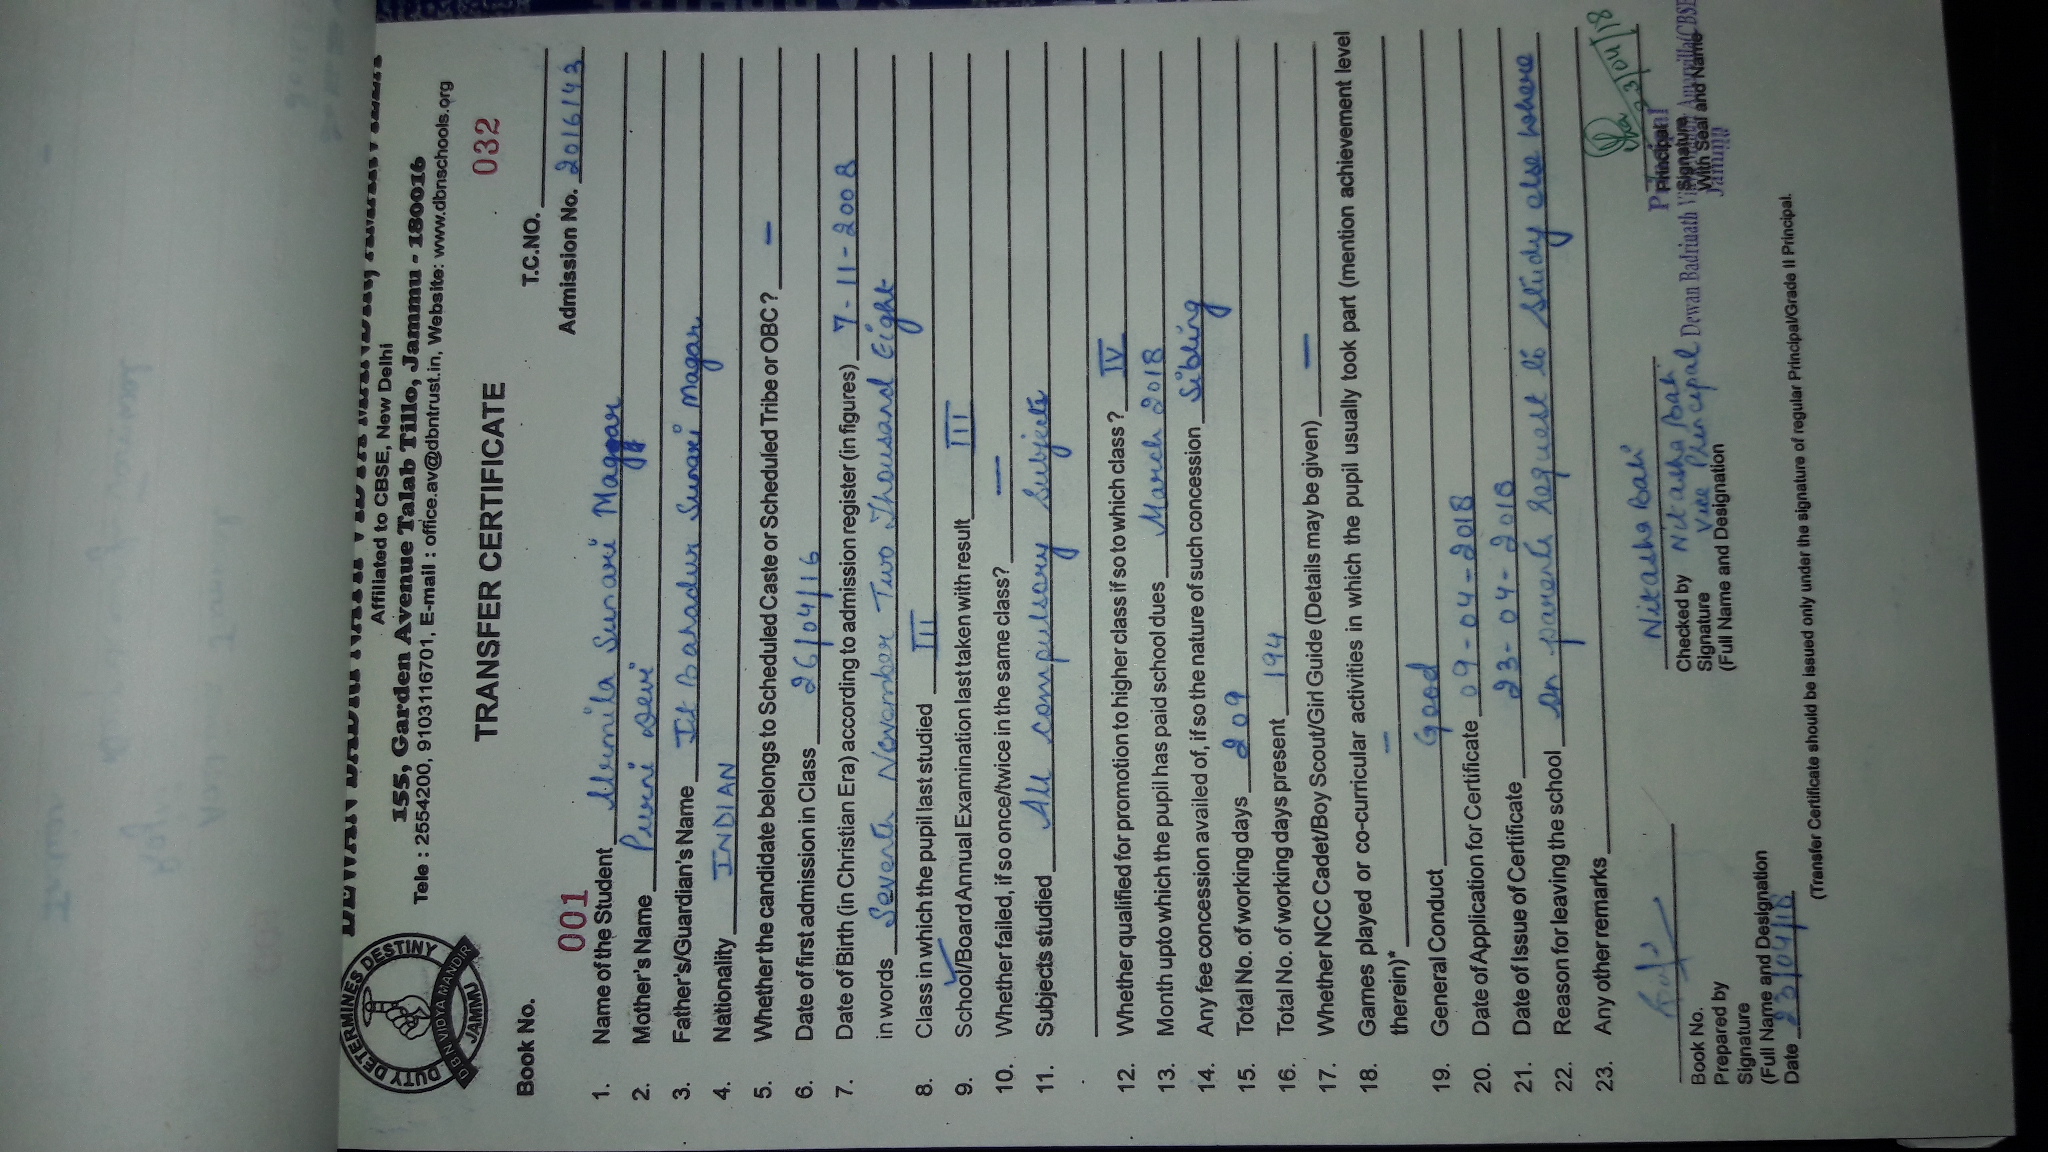 DEWAN BADRI NATH VIDYA MANDIR, AMARVILLA
Affiliated to CBSE, New Delhi
155, Garden Avenue Talab Tillo, Jammu - 180016
Tele : 2554200, 9103116701, E-mail : office.av@dbntrust.in, Website: www.dbnschools.org
DUTY DETERMINES DESTINY
D.B.N VIDYA MANDIR
JAMMU
TRANSFER CERTIFICATE
Book No. 001 T.C.NO. 032
Admission No. 2016143
1. Name of the Student Urmila Sunari Maggar
2. Mother's Name Purni Devi
3. Father's/Guardian's Name It Bahadur Sunari Magar
4. Nationality INDIAN
5. Whether the candidate belongs to Scheduled Caste or Scheduled Tribe or OBC? —
6. Date of first admission in Class 26/04/16
7. Date of Birth (in Christian Era) according to admission register (in figures) 7-11-2008
in words Seventh November Two Thousand Eight
8. Class in which the pupil last studied III
9. School/Board Annual Examination last taken with result III
10. Whether failed, if so once/twice in the same class? —
11. Subjects studied All compulsory Subjects
12. Whether qualified for promotion to higher class if so to which class? IV
13. Month upto which the pupil has paid school dues March 2018
14. Any fee concession availed of, if so the nature of such concession Sibling
15. Total No. of working days 209
16. Total No. of working days present 194
17. Whether NCC Cadet/Boy Scout/Girl Guide (Details may be given) —
18. Games played or co-curricular activities in which the pupil usually took part (mention achievement level
therein)* —
19. General Conduct Good
20. Date of Application for Certificate 09-04-2018
21. Date of Issue of Certificate 23-04-2018
22. Reason for leaving the school On parents Request to study else where
23. Any other remarks
Nitasha Bali
23/04/18
Book No.
Prepared by
Signature
(Full Name and Designation
Date 23/04/18
Checked by Nitasha Bali
Signature Vice Principal
(Full Name and Designation
Principal
Signature
With Seal and Name
Principal
Dewan Badrinath Vidya Mandir Amarvilla(CBSE
Jammu
(Transfer Certificate should be issued only under the signature of regular Principal/Grade II Principal.